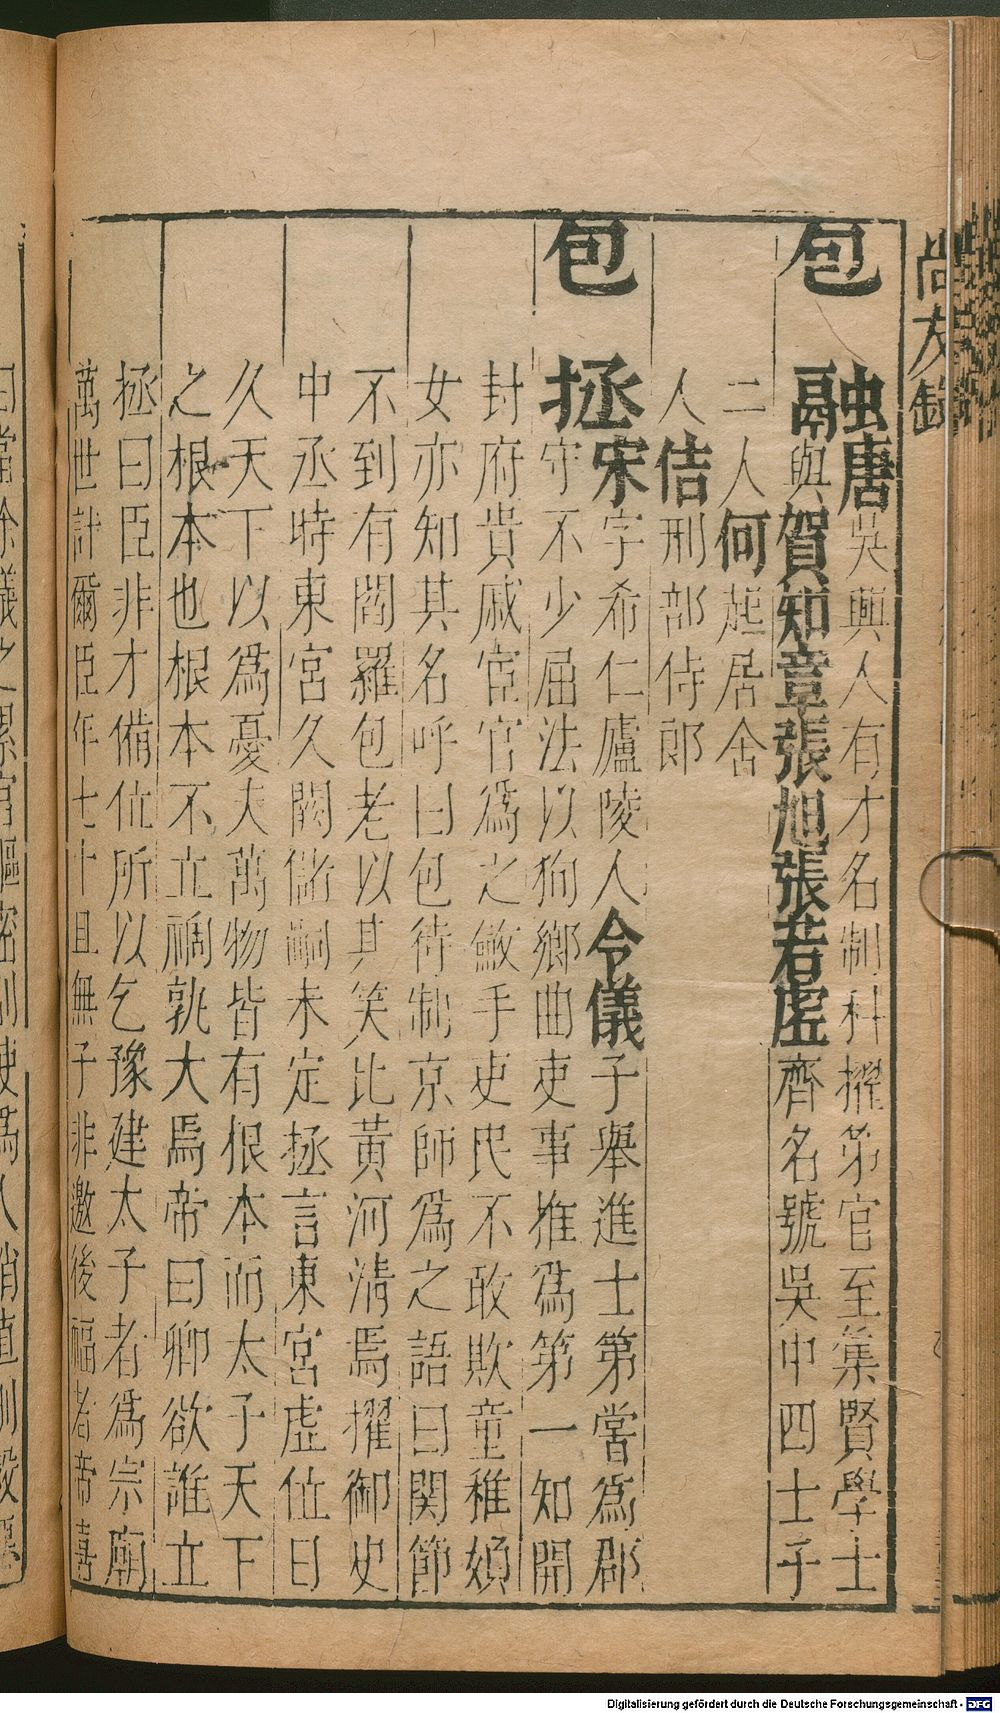 尚友錄
包
融唐吳興人有才名制科擢第官至集賢學士
與賀知章張旭張若虛齊名號吳中四士子
二人何起居舍
人佶刑部侍郎
包
拯宋字希仁廬陵人令儀子舉進士第嘗爲郡
守不少屈法以狥鄉曲吏事推爲第一知開
封府貴戚宦官爲之斂手吏民不敢欺童稚婦
女亦知其名呼曰包待制京師爲之語曰関節
不到有閻羅包老以其笑比黃河清焉擢御史
中丞時東宮久闕儲嗣未定拯言東宮虛位日
久天下以爲憂夫萬物皆有根本而太子天下
之根本也根本不立禍孰大焉帝曰卿欲誰立
拯曰臣非才備位所以乞豫建太子者爲宗廟
萬世計爾臣年七十且無子非邀後福者帝喜
Digitalisierung gefördert durch die Deutsche Forschungsgemeinschaft - DFG